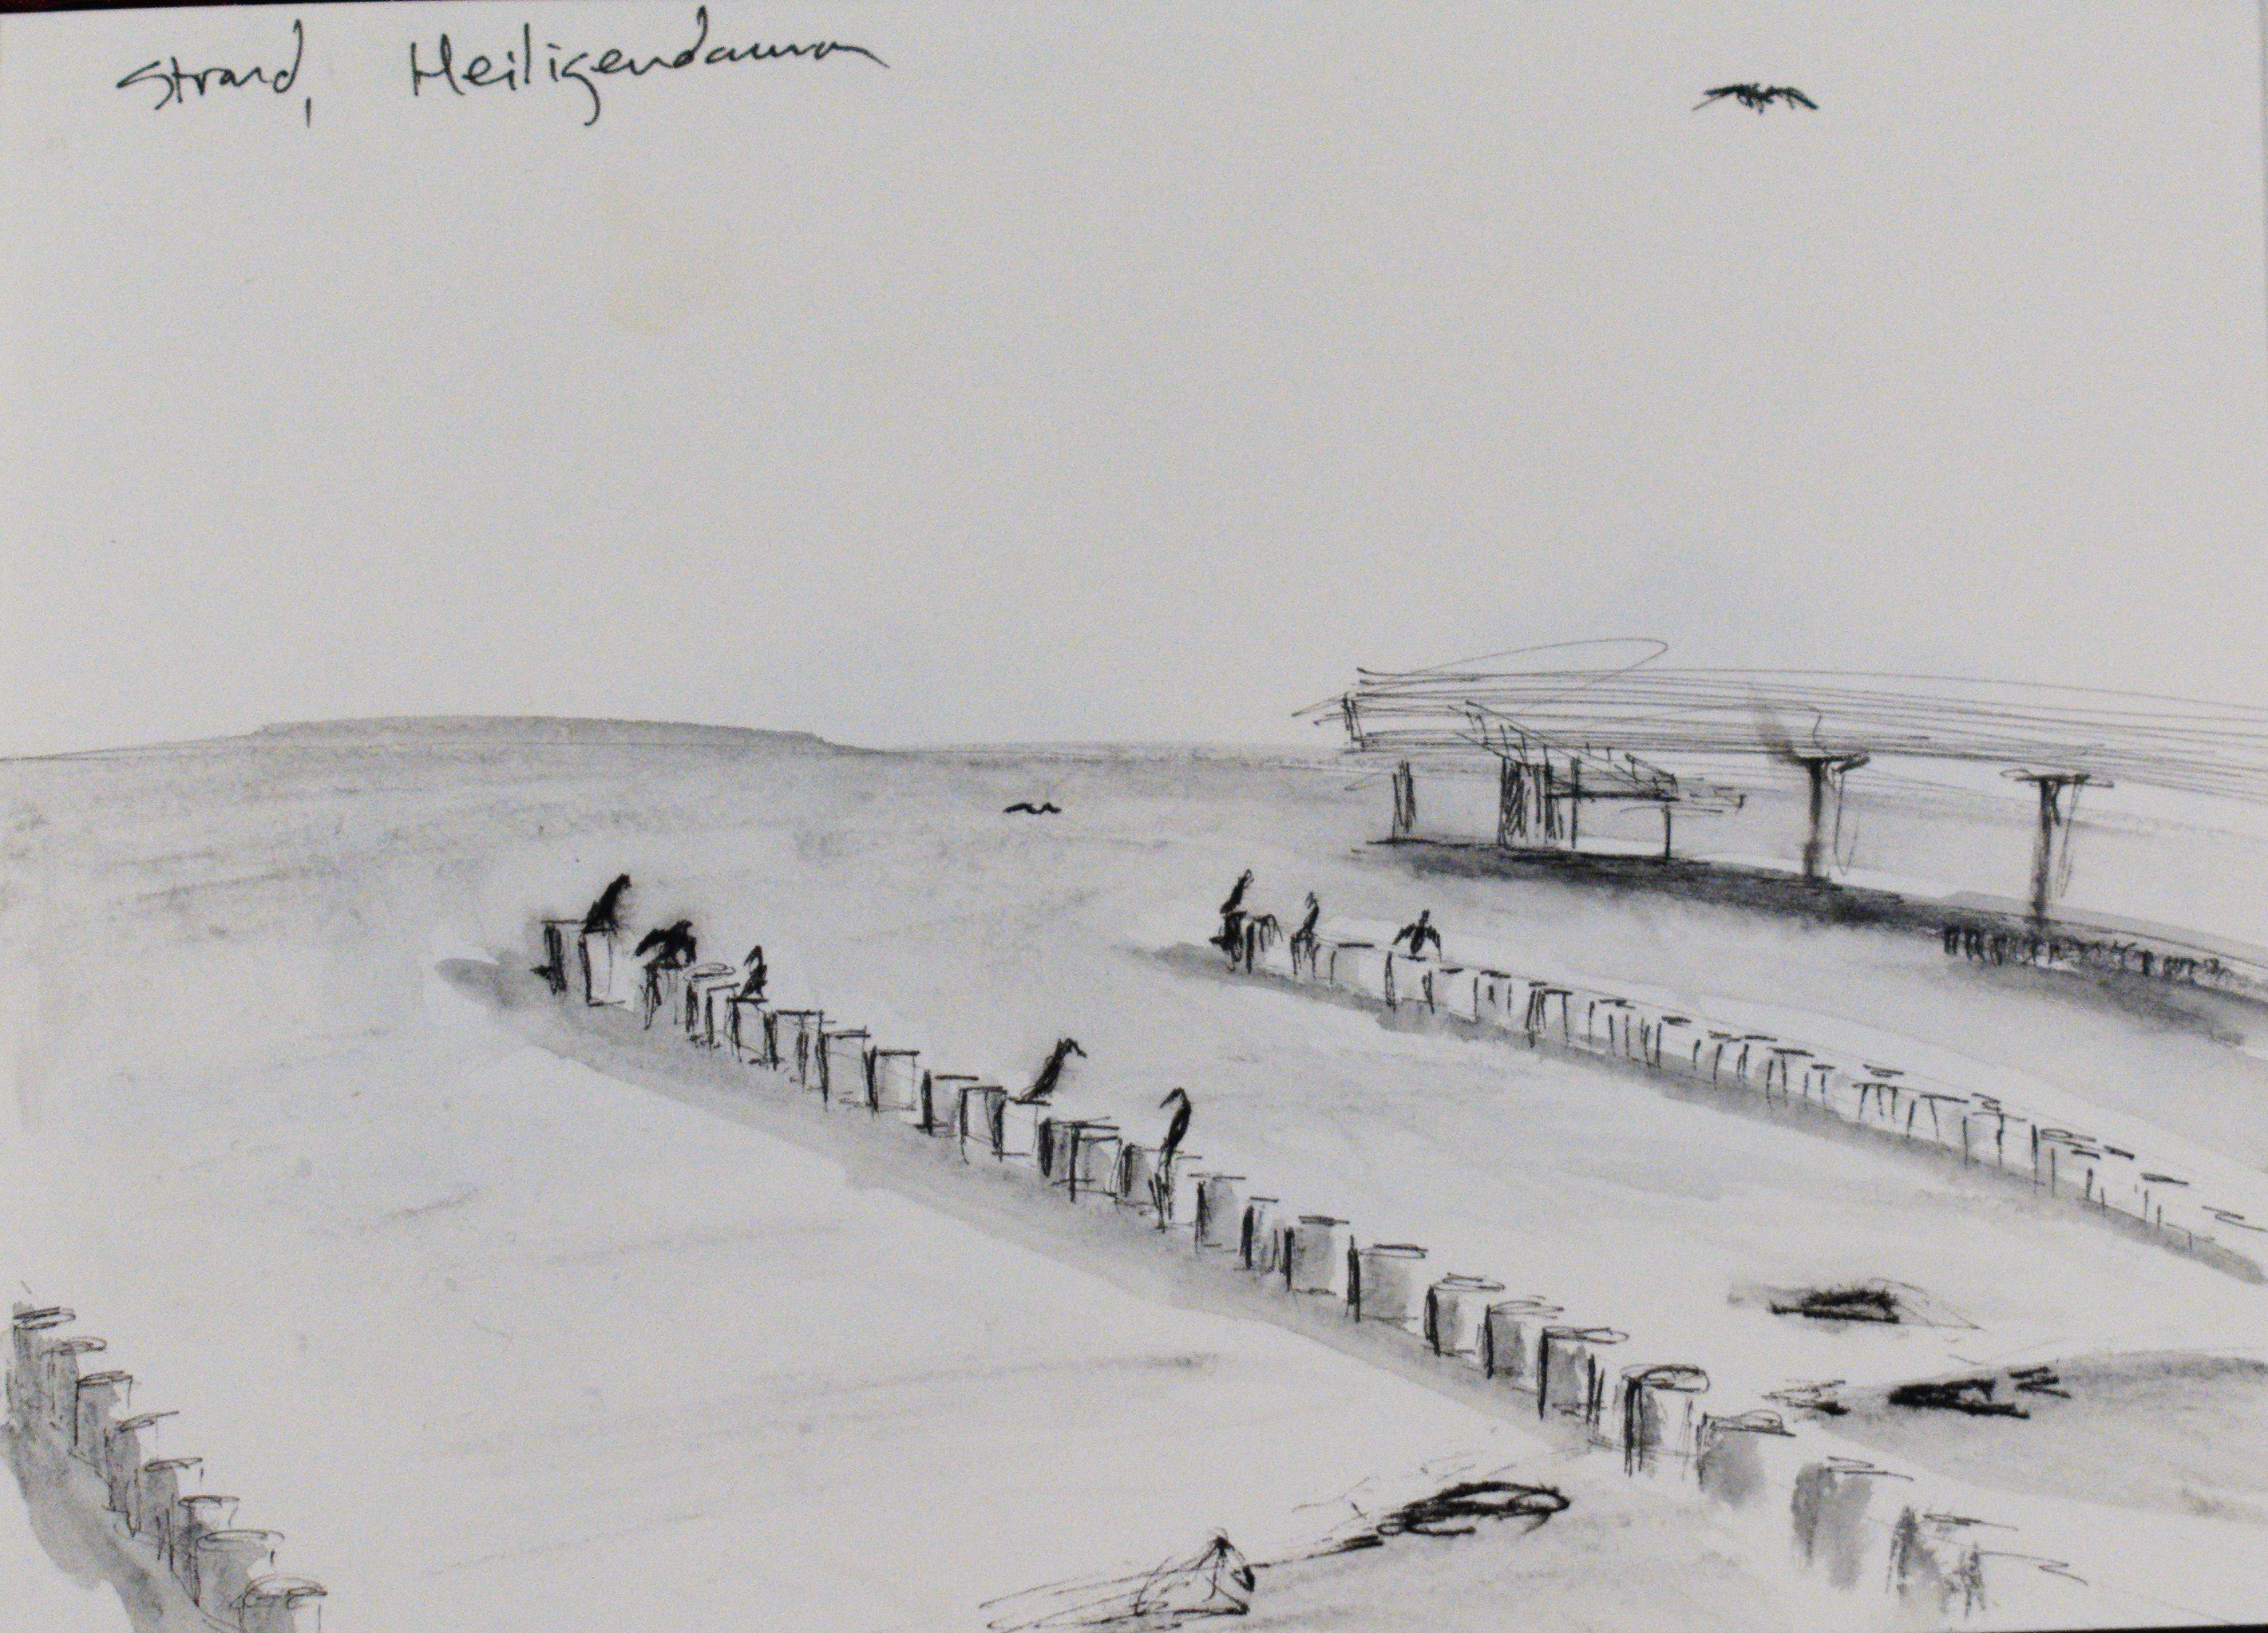 Strand, Heiligendamm